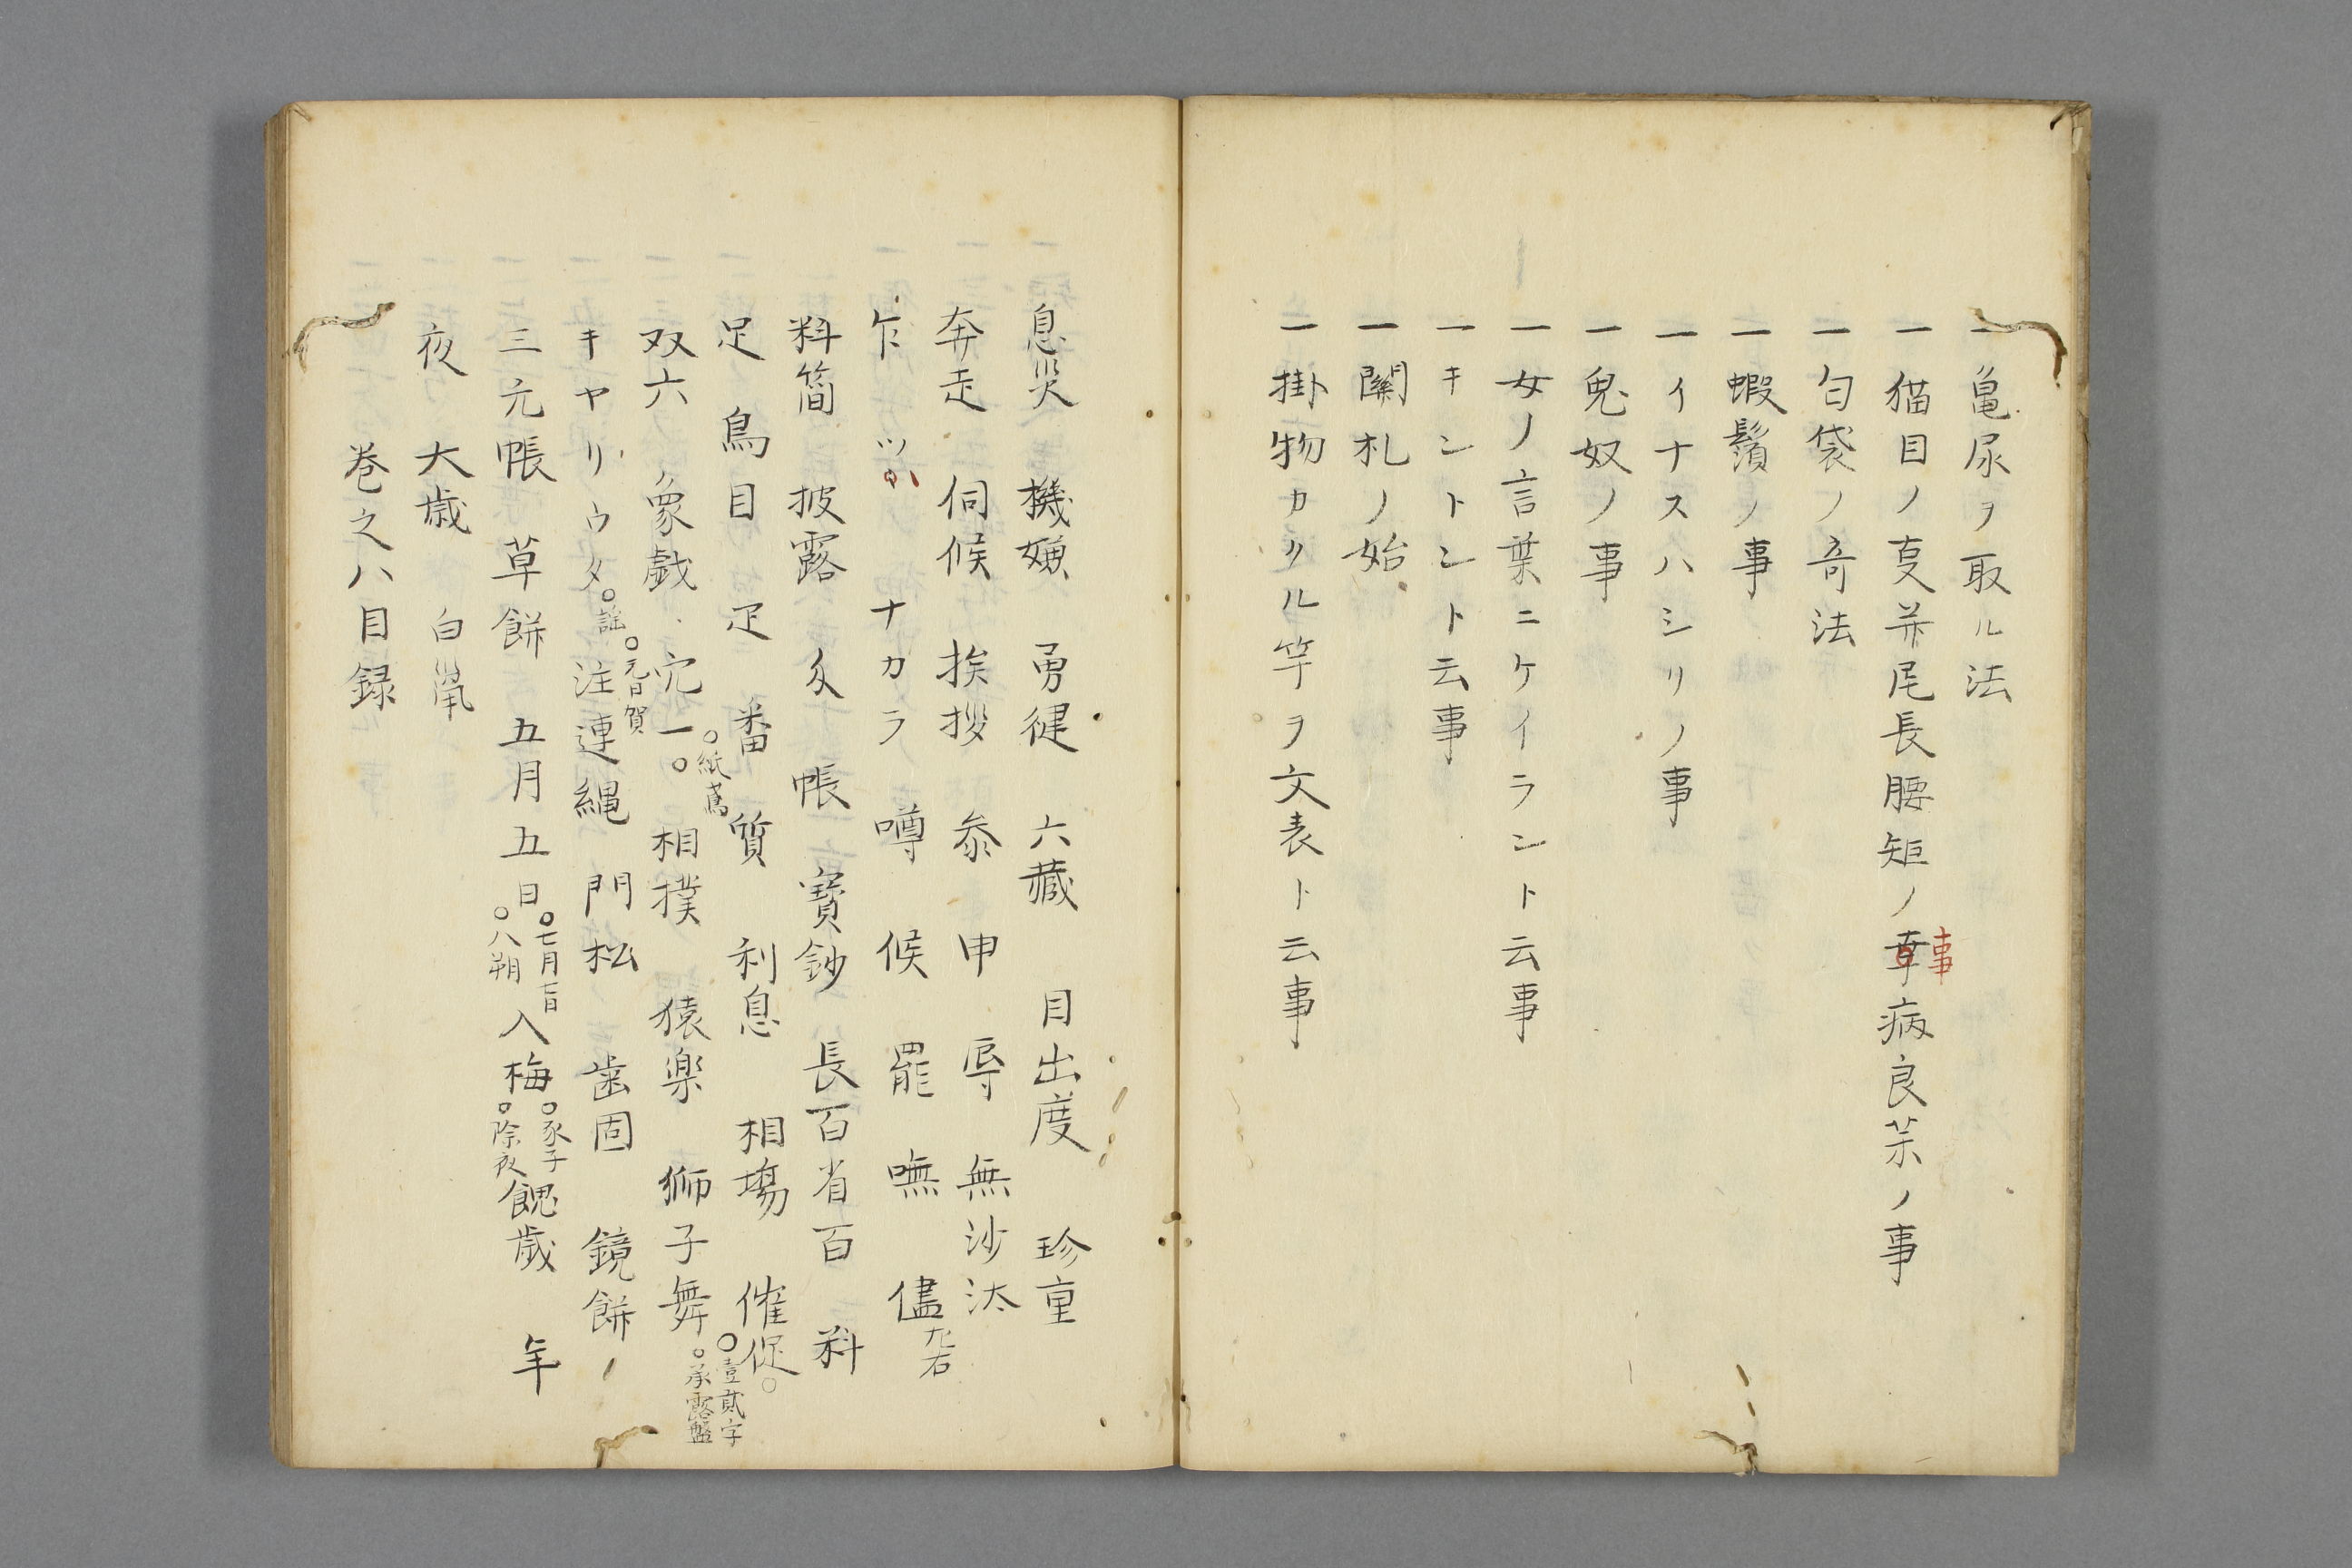 一亀尿ヲ取ル法
一猫目ノ叓并尾長腰矩ノ事病良茶ノ事
事
一匂袋ノ奇法
一蝦鬚ノ事
一イナスハシリノ事
一鬼奴ノ事
一女ノ言葉ニケイラント云事
一キントント云事
一關札ノ始
一掛物カクル竿ヲ文表ト云事
息災 機嫌 勇健 六藏 目出度 珍重
奔走 伺候 挨拶 参 申 辱 無沙汰
乍 ツ ナカラ 噂 候 罷 嘸 儘
料簡 披露 攵 帳 寳鈔 長百省百 料
足 鳥目 疋 番 質 利息 相場 催促
○壹貳字
○承露盤
双六 象戯 穴一○ 相撲 猿楽 獅子舞
○紙鳶
キヤリウタ○謡 注連縄 門松 歯固 鏡餅
○元日賀
三元帳 草餅 五月五日 入梅 餽歳 年
○七月七日
○八朔
○豕子
○除夜
夜 大歳 白鼠
巻之八目録